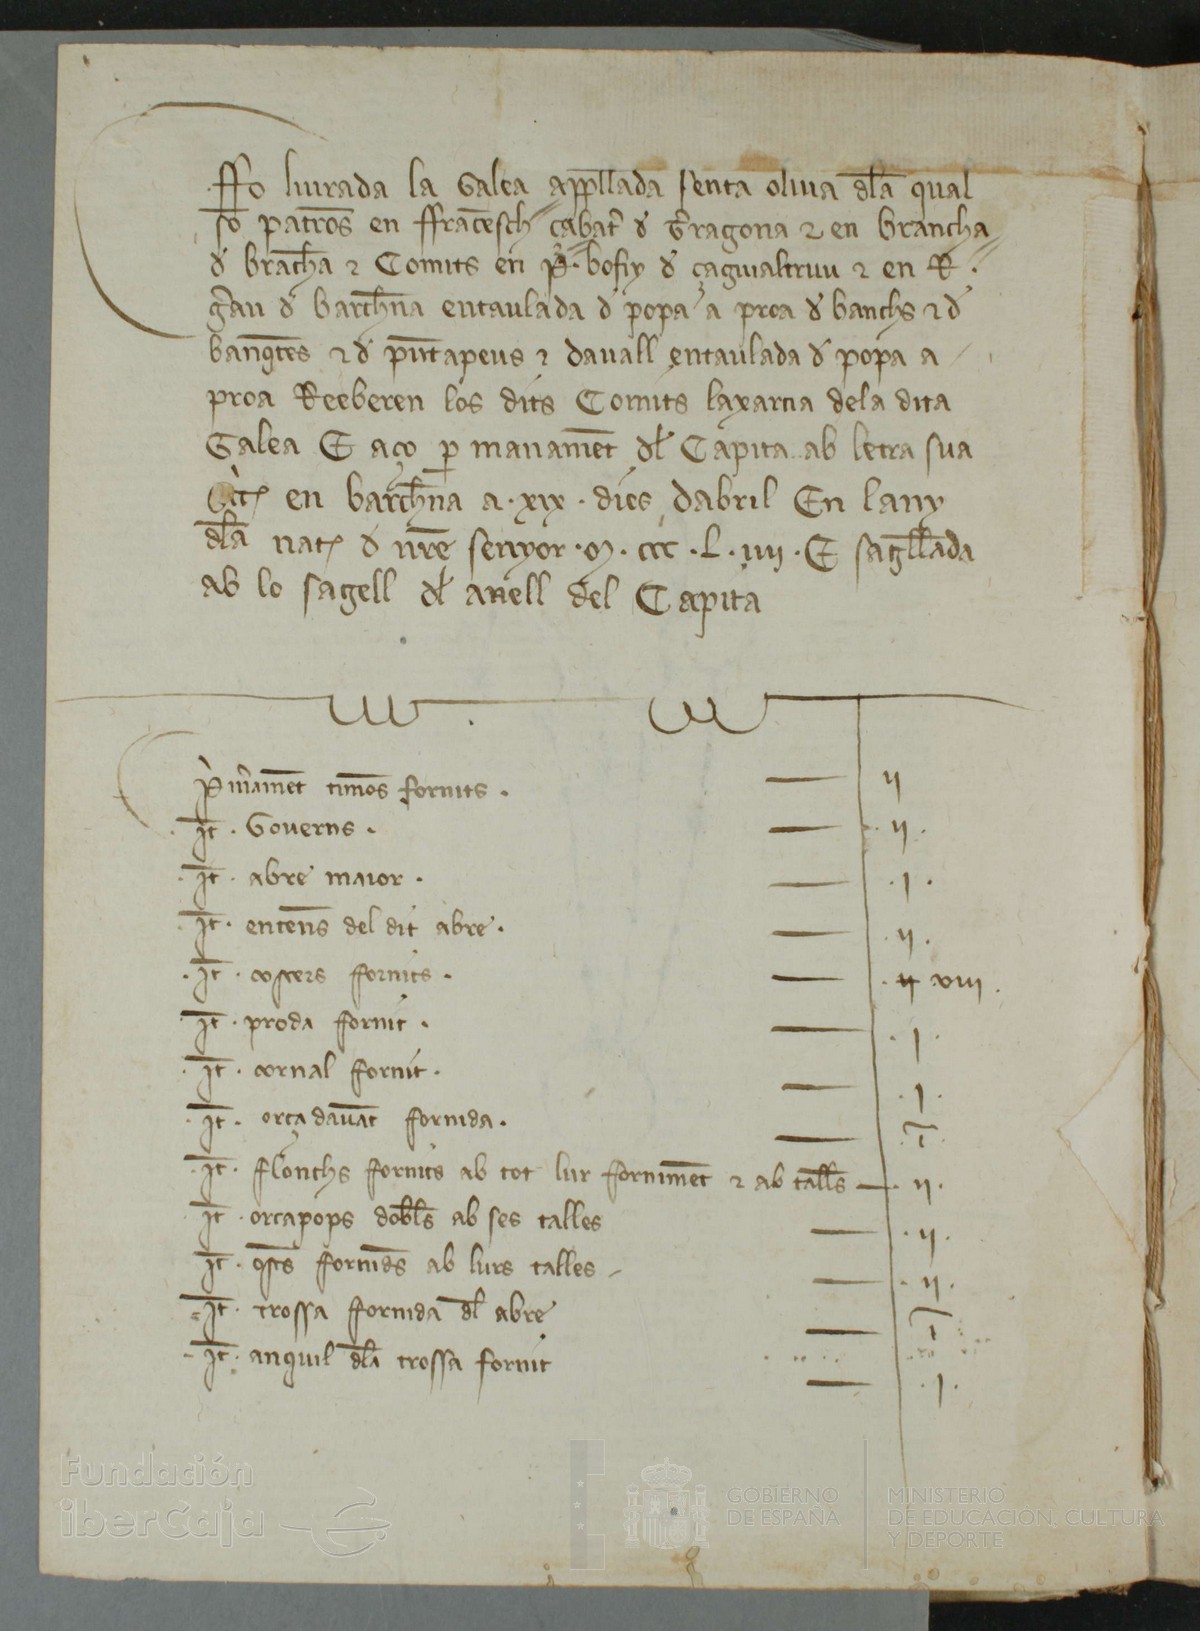 Fo liurada la Galea appellada senta oliua dla qual
so patrōs en ffrācesch çabat̉ d̉ Tr̉ragona ⁊ en brancha
d̉ brach̄a ⁊ Comits en P̉. bofiy d̉ ⁊ en R.
gr̉au d̉ barch̄na entaulada d̉ popa a proa d̉ banchs ⁊ d̉
banq̄tes ⁊ d̉ pūtapeus ⁊ dauall entaulada d̉ popa a
proa Reeberen los dits Comits laxarcia dela dita
Galea E aço p̱ manamēt dl̉ Capita ab letra sua
en barch̄na a . xix . dies dabril En lany
dla nat̉ d̉ nr̄e senyor . m . ccc . L . iiii . E sagllada
ab lo sagell dl̉ anell del Capita
P̉m̉amēt timōs fornits .
It̄ . Gouerns .
It̄ . abre maior .
It̄ . entēns del dit abre .
It̄ . costers fornits .
It̄ . proda fornit .
It̄ . cornal fornit .
It̄ . orça dauāt fornida .
It̄ . flonchs fornits ab tot lur fornimēt ⁊ ab tall̄s
It̄ . orcapops dobl̄s ab ses talles
It̄ . q̄sts fornid̄s ab lurs talles
It̄ . trossa fornida dl̉ abre
It̄ . anquil dla trossa fornit
ii
. ii .
. i .
. ii .
. ii xviii .
. i .
. i .
. i .
. ii .
. ii .
. ii .
i
. i .
Fundación
iberCaja
GOBIERNO
DE ESPAÑA
MINISTERIO
DE EDUCACIÓN, CULTURA
Y DEPORTE